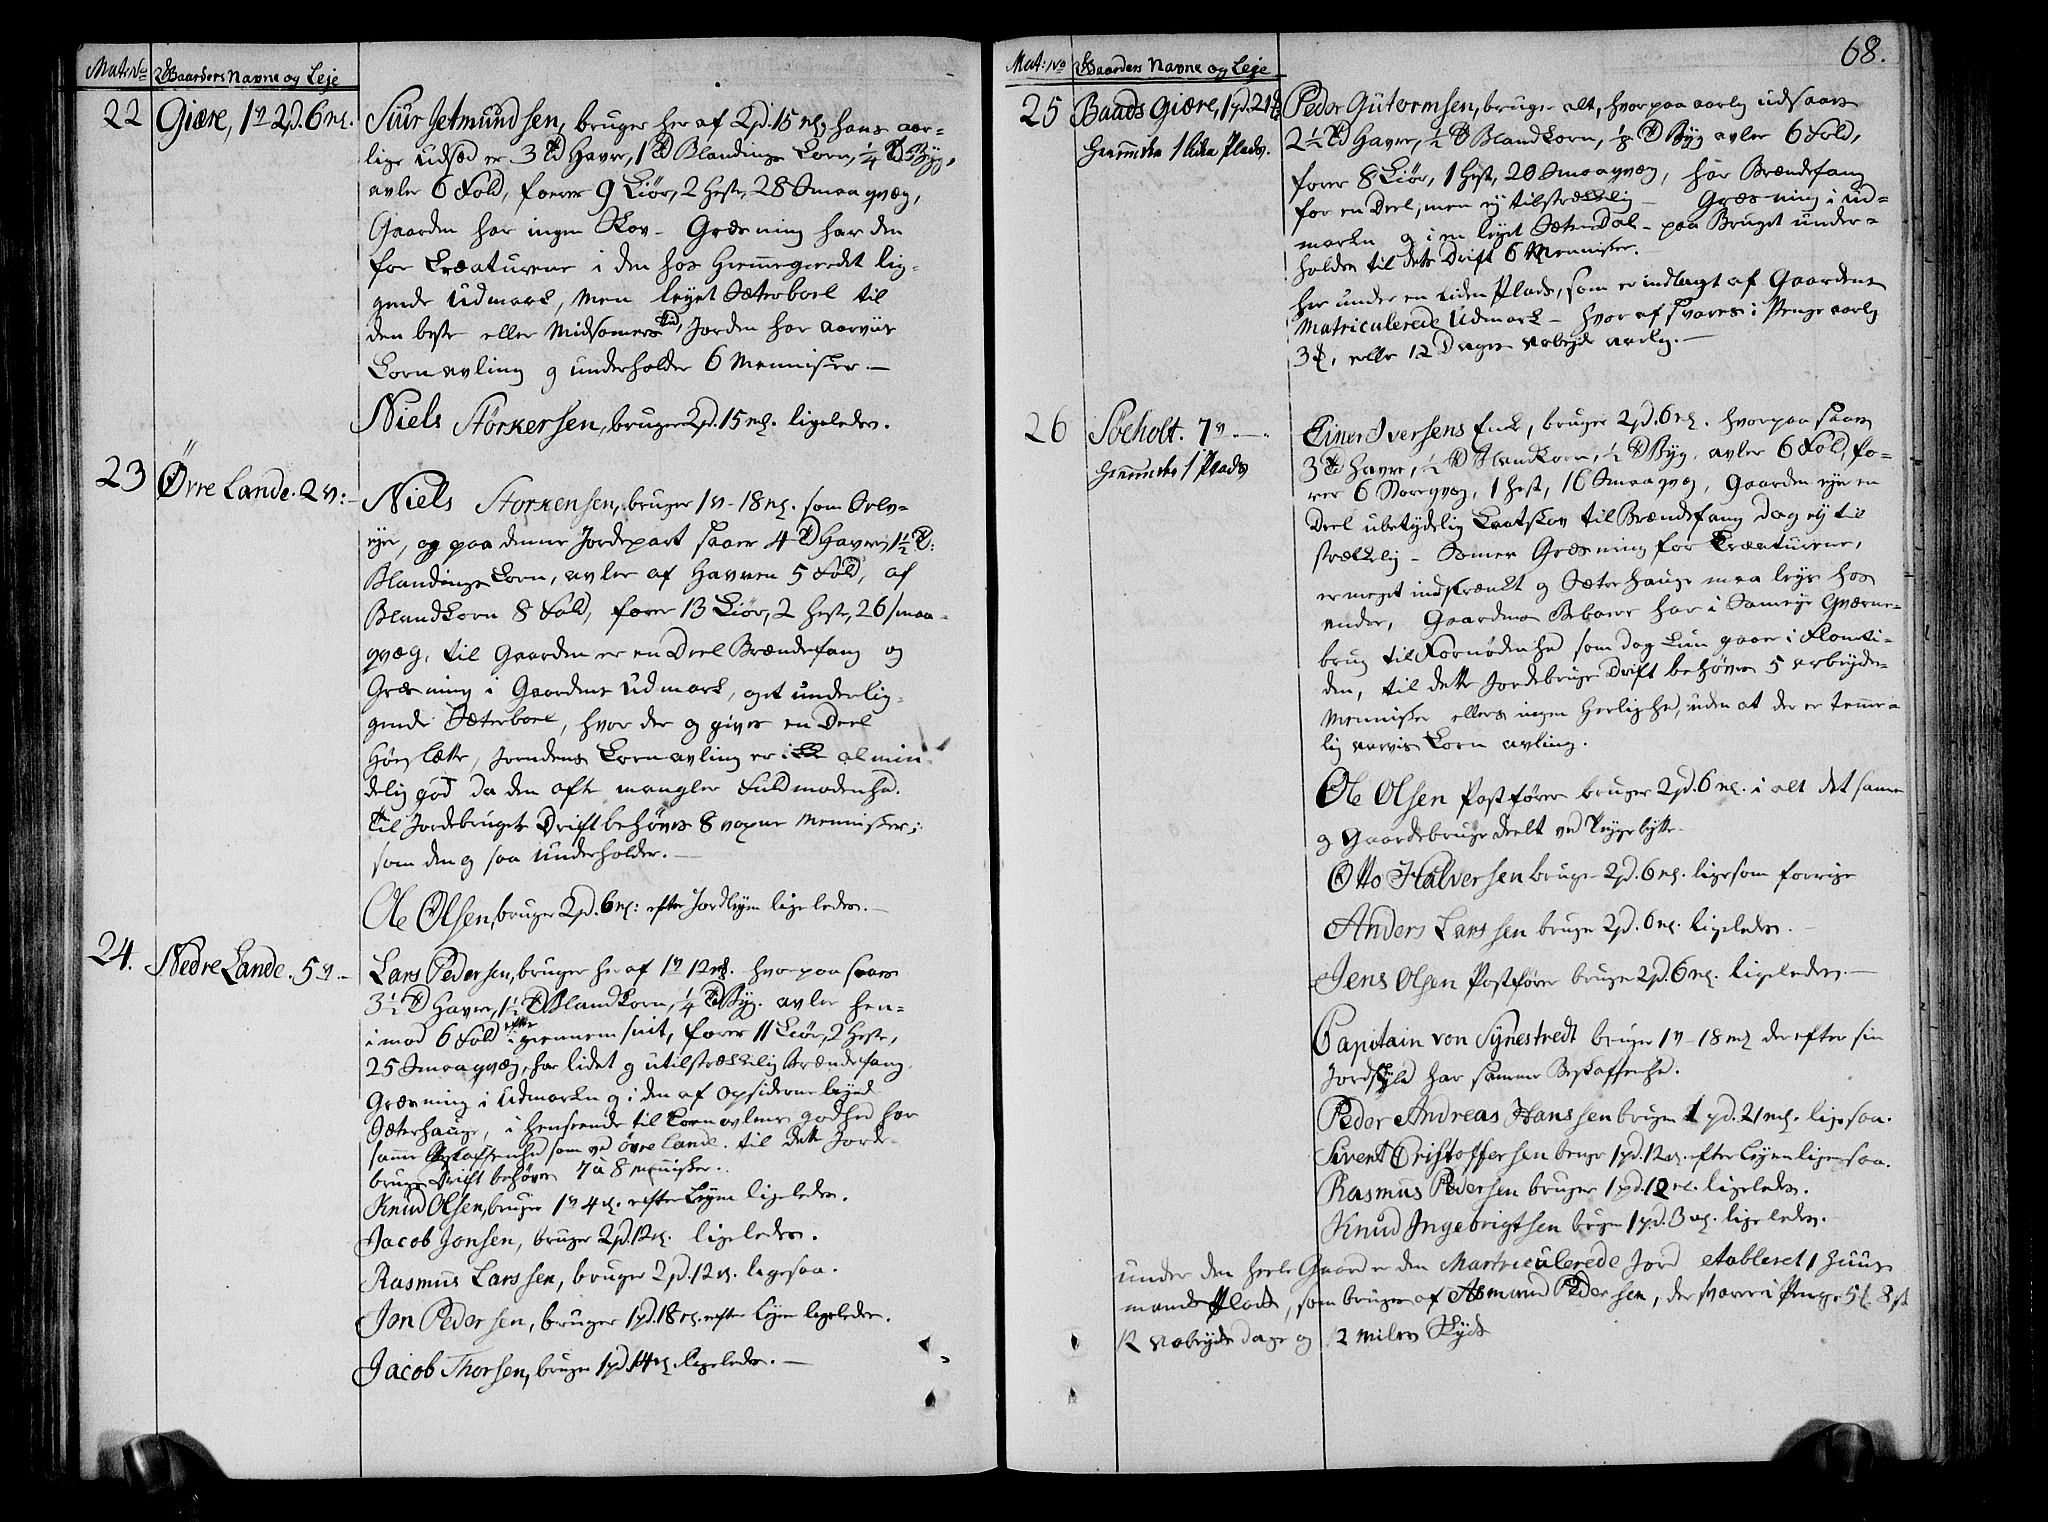 Mat: No Gaarders Navne og Leje
22 Giære, 1 V 2 pd. 6 mk.
Siur Jetmundsen, bruger her af 2 pd. 15 mk, hans aar-
lige Udsæd er 3 Td Havre, 1 Td Blandings Korn, 1/4 Td Byg,
avler 6 Fold, foerer 9 Kiør, 2 Heste, 28 Smaaqvæg,
Gaarden har ingen Skov - Græsning har den
for Creaturene i den hos Hiemmegierdet lig-
gende Udmark, men leyet Sæterboel til
den beste eller Midsomers Tid, Jorden har aarvis
Kornavling og underholder 6 Mennisker. -
Niels Störkersen, bruger 2 pd. 15 mk. ligeledes.
23 Övre Lande. 2 V: -
Niels Storkensen, bruger 1 V - 18 mk. som Selv-
eyer, og paa denne Jordepart saaer 4 Td Havre, 1 1/2 Td:
Blandings Korn, avler af Havren 5 Fold, af
Blandkorn 8 Fold, foerer 13 Kiør, 2 Heste, 26 smaa-
qvæg, til Gaarden er en Deel Brændefang og
Græsning i Gaardens Udmark, og et underlig-
gende Sæterboel, hvor der og gives en Deel
Høeslætte, Jordens Kornavling er ikke almin-
delig god da den ofte mangler Fuldmodenhed.
til Jordebrugets Drift behøves 8 voxne Mennisker;
som den og saa underholder. -
Ole Olsen, bruger 2 pd. 6 mk: efter Jordleyen ligeledes. -
24. Nedre Lande. 5 V -
Lars Pedersen, bruger her af 1 V 12 mk. hvorpaa saaes
3 1/2 Td Havre, 1 1/2 Td Blandkorn, 1/4 Td Byg. avler hen-
imod 6 Fold efter i giennemsnit, foerer 11 Kiør, 2 Heste,
25 Smaaqvæg, har lidet og utilstrækkelig Brændefang.
Græsning i Udmarken og i den af Opsiderne leyed
Sæterhauge, i henseende til Kornavlens godhed har
samme Beskaffenhed som ved øvre Lande. til dette Jorde-
brugs Drift behøves 7 à 8 Mennisker.
Knud Olsen, bruger 1 V 4 mk. efter Leyen ligeledes.
Jacob Jonsen, bruger 2 pd. 12 mk. ligeledes.
Rasmus Larssen, bruger 2 pd. 12 mk. ligesaa.
Jon Pedersen, bruger 1 pd. 18 mk. efter Leyen ligeledes.
Jacob Thorsen, bruger 1 pd. 14 mk. ligeledes. -
68.
Mat: No Gaarders Navne og Leje
25 Baads Giære, 1 pd. 21 mk
Herunder 1 liden Plads.
Peder Gutormsen, bruger alt, hvorpaa aarlig udsaaes
2 1/2 Td Havre, 1/2 Td Blandkorn, 1/8 Td Byg avler 6 Fold,
foerer 8 Kiør, 1 Hest, 20 Smaaqvæg, har Brændefang
for en Deel, men ej tilstrækkelig - Græsning i Ud-
marken og i en leyet Sæterdal - paa Bruget under-
holdes til dets Drift 6 Mennisker. -
her under en liden Plads, som er indlagt af Gaardens
Matriculerede Udmark - hvor af svares i Penge aarlig
3 , eller 12 Dages Arbeyde aarlig. -
26 Soeholt. 7 V. -
Herunder 1 Plads
Einer Iversens Enke, bruger 2 pd. 6 mk. hvorpaa saaes
3 Td Havre, 1/2 Td Blandkorn, 1/2 Td Byg, avler 6 Fold, fo-
rer 6 Storeqvæg, 1 Hest, 16 Smaaqvæg, Gaarden eyer en
Deel ubetydelig Kratskov til Brændefang dog ej til
strækkelig - Somer Græsning for Creaturene,
er meget indskrænkt og Sæterhauge maa leyes hos
andre, Gaardens Beboere har i Sameye Qværne-
brug til Fornødenhed som dog kun gaaer i Flometi-
den, til dette Jordebrugs Drift behøves 5 arbeyden-
Mennisker ellers ingen Herlighed, uden at der er temme-
lig aarvis Kornavling.
Ole Olsen Postfører bruger 2 pd. 6 mk. i alt det samme
og Gaardebruget deelt ved
Otto Halversen bruger 2 pd. 6 mk. ligesom forrige
Anders Larssen bruger 2 pd. 6 mk. ligeledes. -
Jens Olsen Postfører bruger 2 pd. 6 mk. ligeledes. -
Capitain von Synestvedt bruger 1 V - 18 mk der efter sin
Jordskyld har samme Beskaffenhed.
Peder Andreas Hanssen bruger 1 pd. 21 mk. ligesaa.
Sivert Cristoffersen bruger 1 pd. 12 mk. efter Leyen ligesaa.
Rasmus Pedersen bruger 1 pd. 12 mk. ligeledes.
Knud Ingebrigtsen bruger 1 pd. 3 mk. ligeledes. -
under den heele Gaard er den Martriculerede Jord etableret 1 Huus-
mands Plads, som bruges af Asmund Pedersen, der svarer i Penge 5 8
12 Arbeyds Dage og 2 Miles Skyds